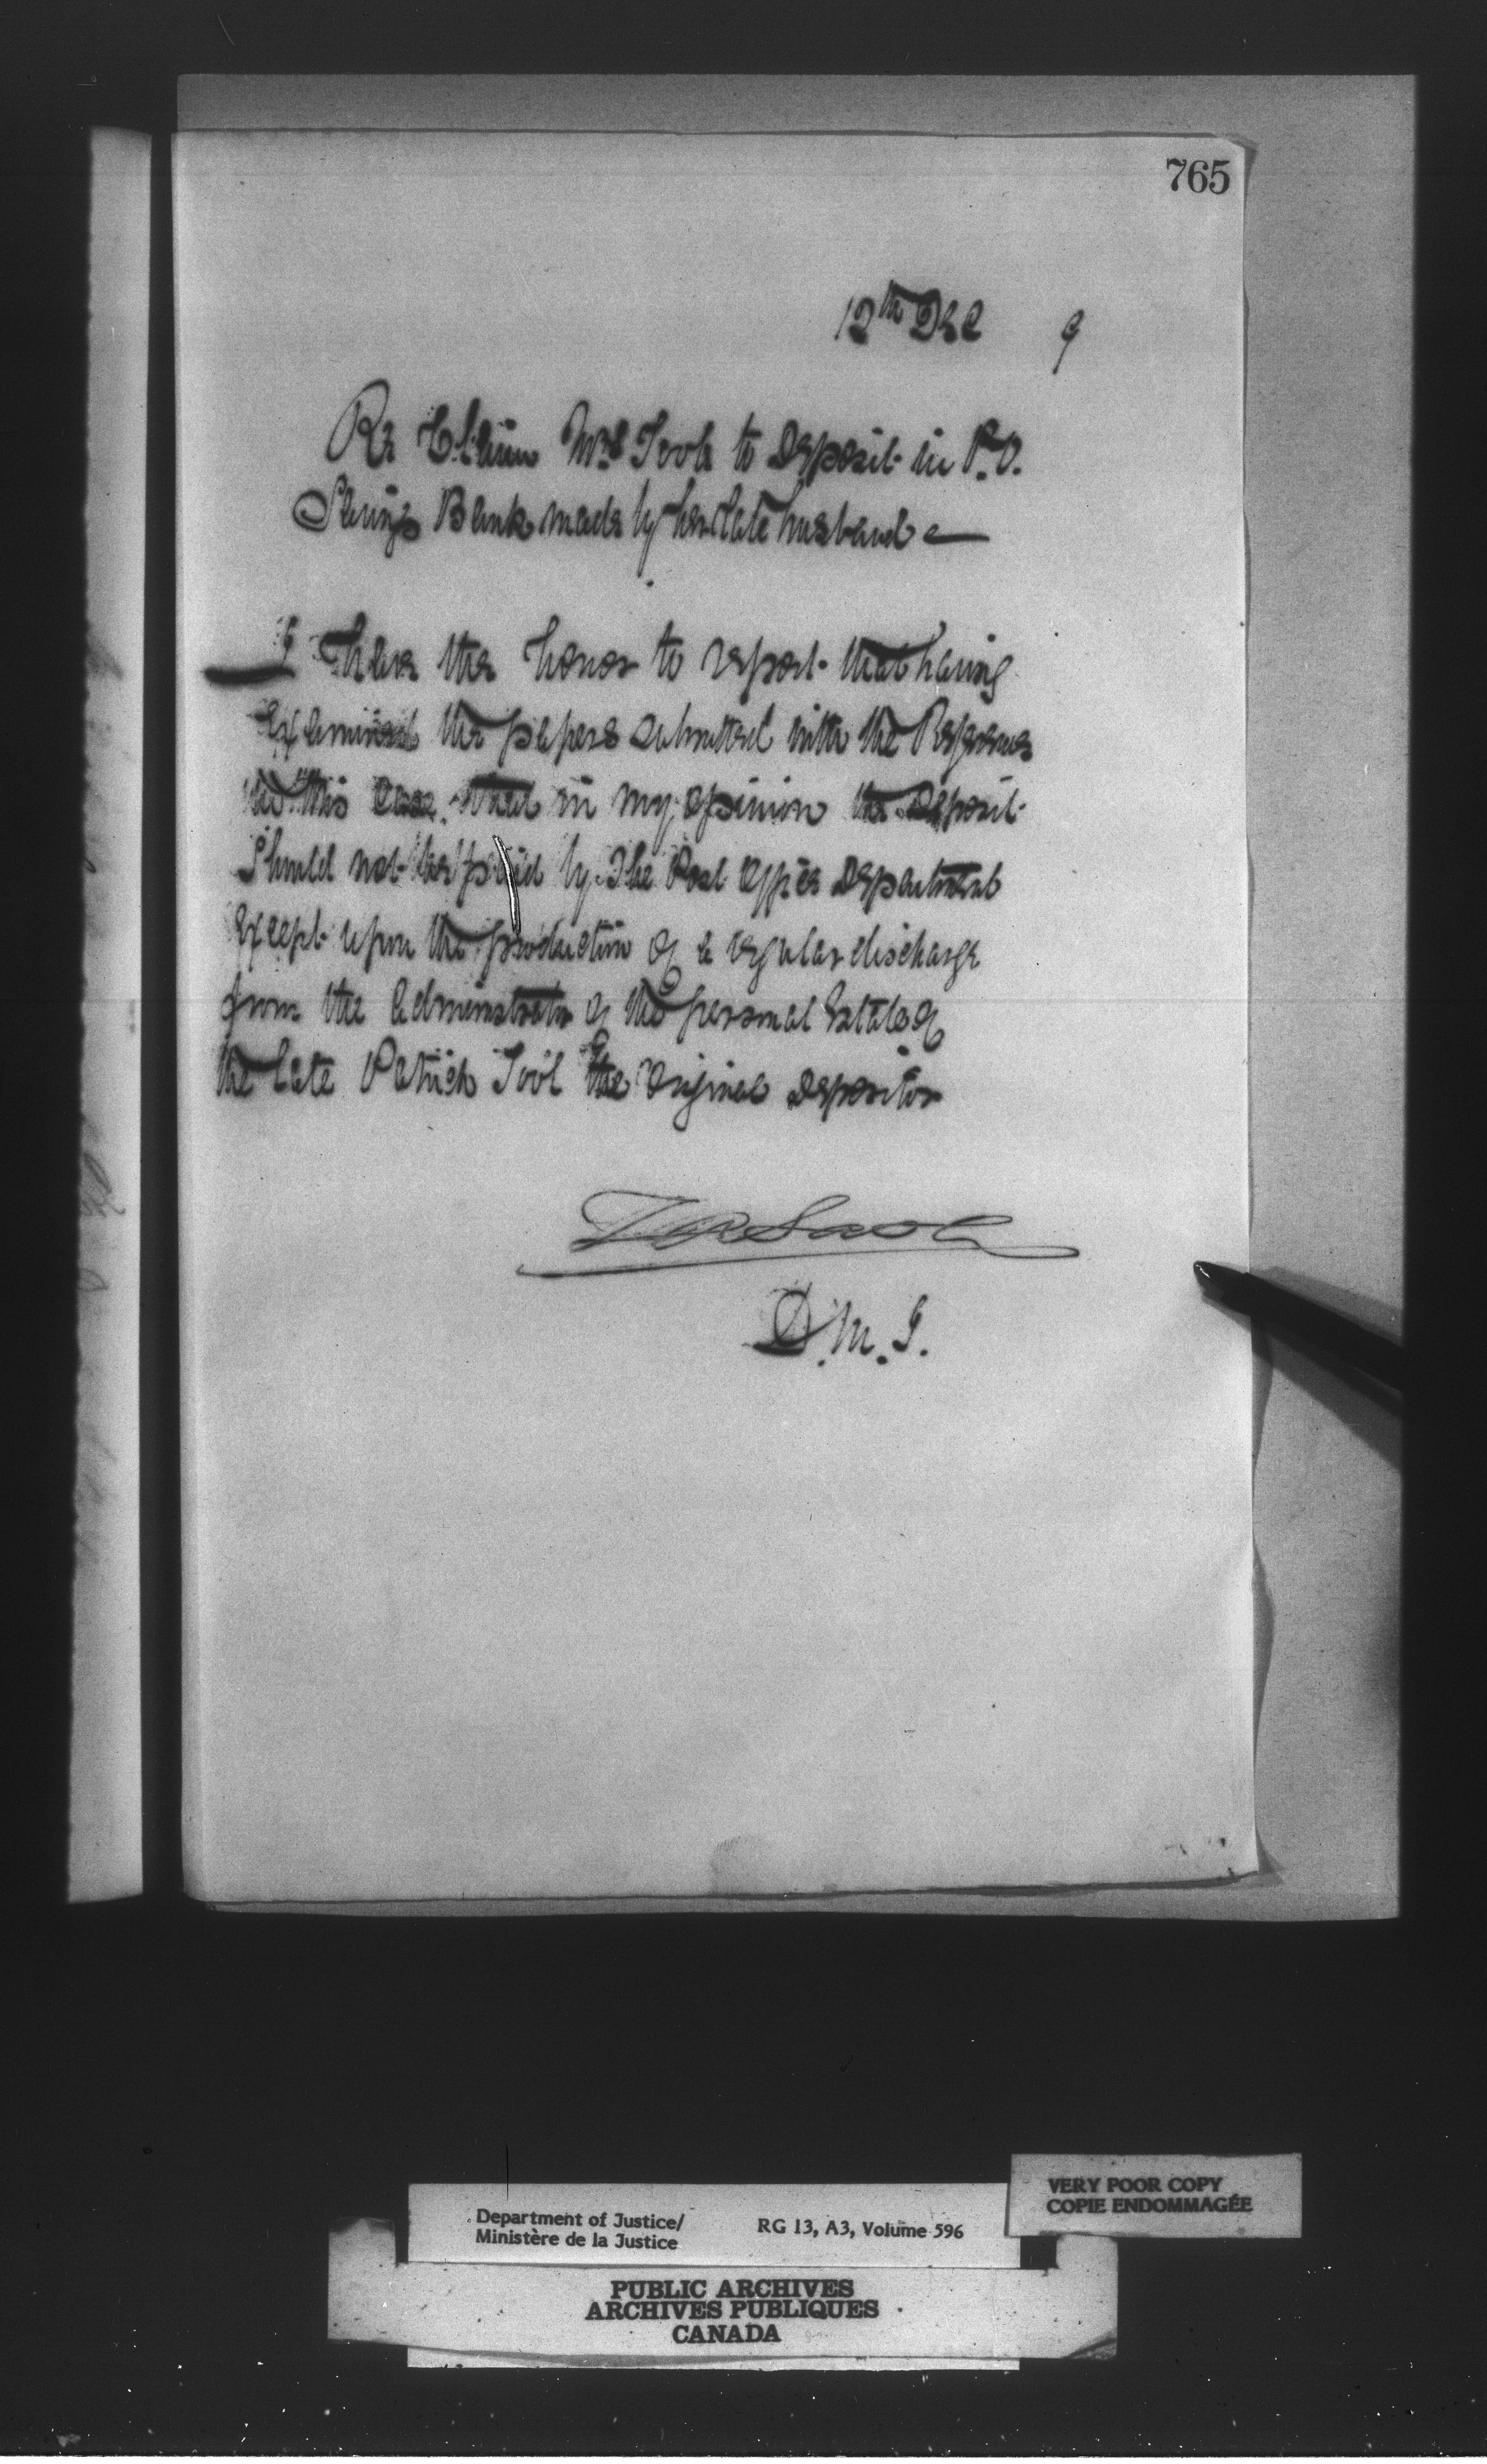 765
12th Dec 9
Re Claim Mrs Toole to Deposit in P.O.
Savings Bank made by her late husband
I have the honor to report that having
Examined the papers submitted with the Reference
in this Case, that in my opinion the deposit
Should not be paid by the Post Office Department
Except upon the production of a regular discharge
from the Administrator of the personal Estate of
the late Patrick Tool the Original depositor
D.M.J.
Department of Justice/
Ministère de la Justice
RG 13, A3, Volume 596
VERY POOR COPY
COPIE ENDOMMAGÉE
PUBLIC ARCHIVES
ARCHIVES PUBLIQUES
CANADA